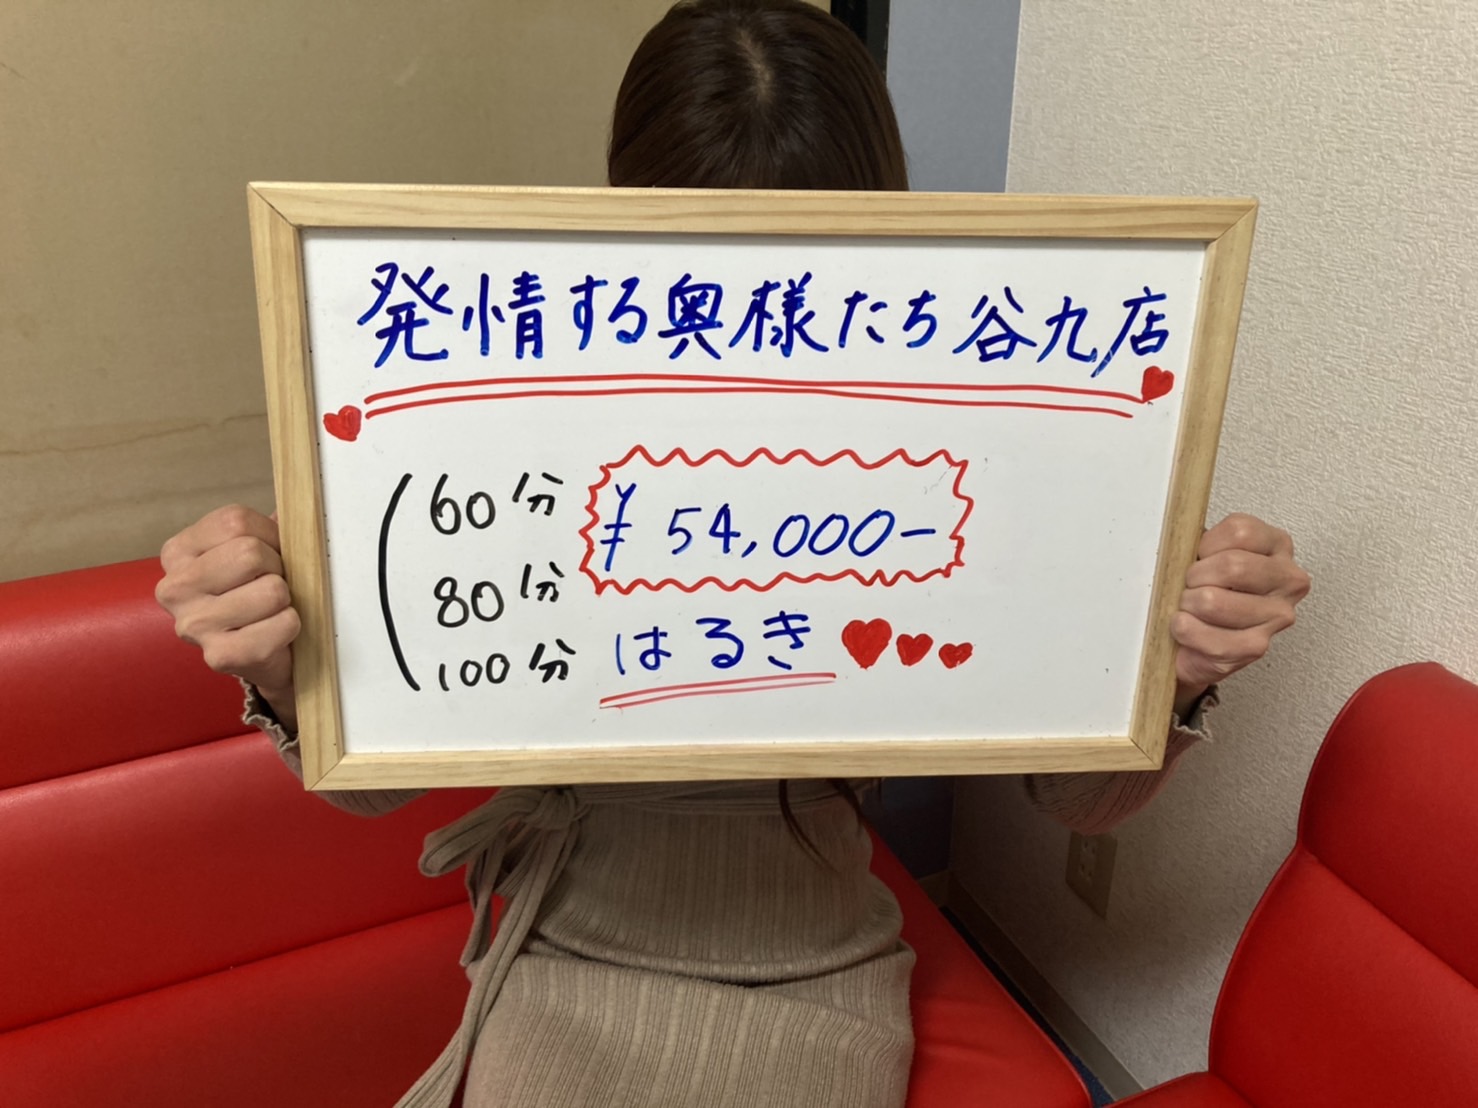 発情する奥様たち谷九店
60分
80分
100分
¥54,000-
はるき